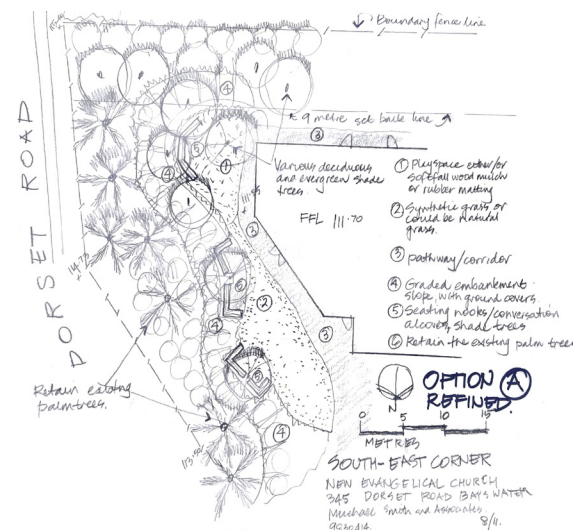 Boundary fence line
9 metre set back line
DORSET ROAD
Various deciduous
and evergreen shade
trees
FFL 111.70
① Playspace either/or
softfall wood mulch
or rubber matting
② Synthetic grass or
could be natural
grass.
③ pathway/corridor
④ Graded embankment
slope, with ground covers.
⑤ Seating nooks/conversation
alcoves, shade trees
⑥ Retain the existing palm trees
④
③
⑤
①
④
③
⑤
②
④
③
⑤
④
114.75
113.50
Retain existing
palm trees.
N
OPTION A
REFINED.
0 5 10 15
METRES
SOUTH-EAST CORNER
NEW EVANGELICAL CHURCH
345 DORSET ROAD BAYSWATER
Michael Smith and Associates
8/11.